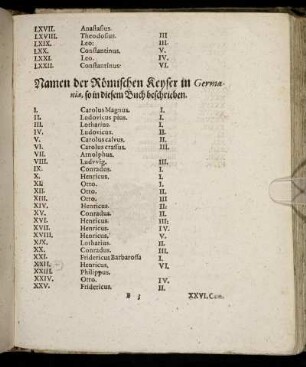 LXVII. Anastasius.
LXVIII. Theodosius. III
LXIX. Leo: III.
LXX. Constantinus. V.
LXXI. Leo. IV.
LXXII. Constantinus VI.
Namen der Römischen Keyser in Germa-
nia, so in diesem Buch beschrieben.
I. Carolus Magnus. I.
II. Ludovicus pius. I.
III. Lotharius. I.
IV. Ludovicus. II.
V. Carolus calvus. II.
VI. Carolus crassus. III.
VII. Arnolphus.
VIII. Ludvvig. III.
IX. Conradus. I.
X. Henricus. I.
XI. Otto. I.
XII. Otto. II.
XIII. Otto. III
XIV. Henricus. II:
XV. Conradus. II.
XVI. Henricus. III:
XVII. Henricus. IV.
XVIII. Henricus. V.
XIX. Lotharius. II.
XX. Conradus. III.
XXI. Fridericus Barbarossa I.
XXII. Henricus. VI.
XXIII. Philippus.
XXIV. Otto. IV.
XXV. Fridericus. II.
XXVI. Con.